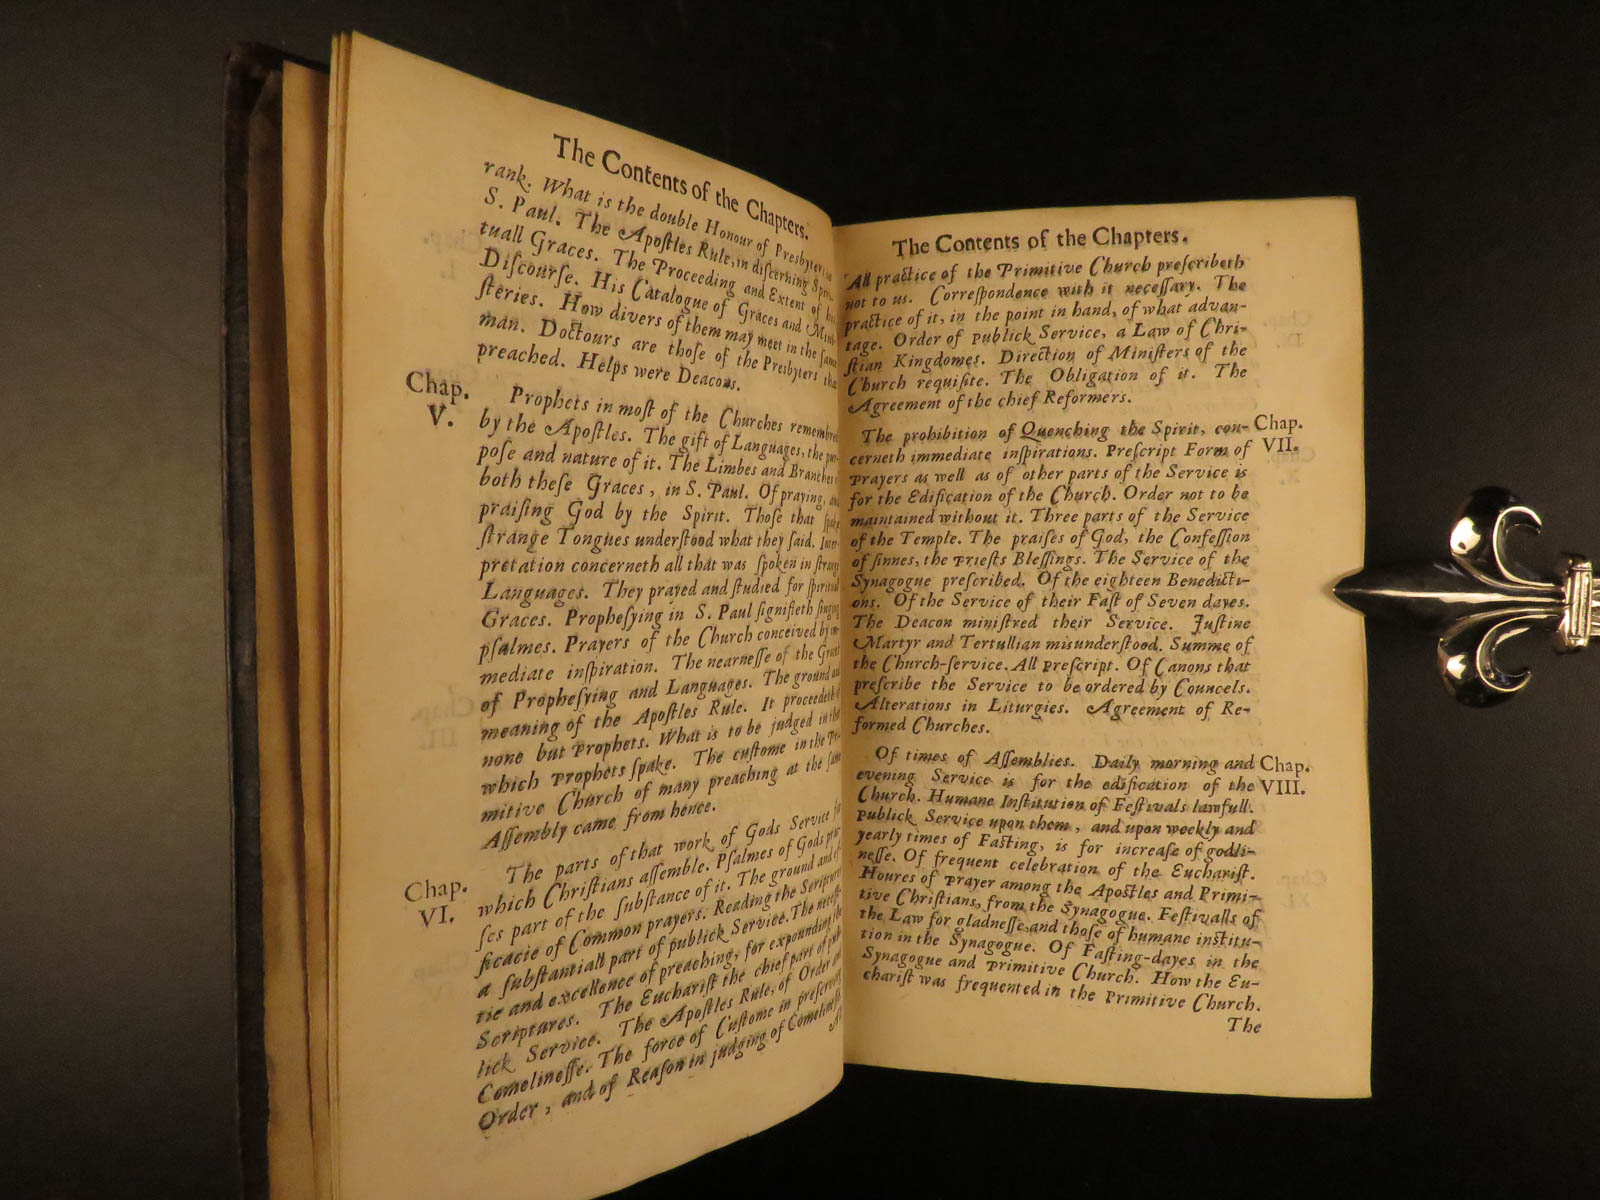 The Contents of the Chapters.
rank. What is the double Honour of Presbyters in
S. Paul. The Apostles Rule, in discerning Spiri-
tuall Graces. The Proceeding and Extent of his
Discourse. His Catalogue of Graces and Mini-
steries. How divers of them may meet in the same
man. Doctours are those of the Presbyters that
preached. Helps were Deacons.
Chap. V.
Prophets in most of the Churches remembred
by the Apostles. The gift of Languages, the pur-
pose and nature of it. The Limbes and Branches of
both these Graces, in S. Paul. Of praying, and
praising God by the Spirit. Those that spake
strange Tongues understood what they said. Inter-
pretation concerneth all that was spoken in strange
Languages. They prayed and studied for spiritual
Graces. Prophesying in S. Paul signifieth singing
psalmes. Prayers of the Church conceived by im-
mediate inspiration. The nearnesse of the Graces
of Prophesying and Languages. The ground and
meaning of the Apostles Rule. It proceedeth of
none but Prophets. What is to be judged in that
which Prophets spake. The custome in the Pri-
mitive Church of many preaching at the same
Assembly came from hence.
Chap. VI.
The parts of that work of Gods Service for
which Christians assemble. Psalmes of Gods prai-
ses part of the substance of it. The ground and ef-
ficacie of Common prayers. Reading the Scriptures
a substantiall part of publick Service. The necessi-
tie and excellence of preaching, for expounding the
Scriptures. The Eucharist the chief part of pub-
lick Service. The Apostles Rule, of Order and
Comelinesse. The force of Custome in preserving
Order, and of Reason in judging of Comelinesse.
All
The Contents of the Chapters.
All practice of the Primitive Church prescribeth
not to us. Correspondence with it necessary. The
practice of it, in the point in hand, of what advan-
tage. Order of publick Service, a Law of Chri-
stian Kingdomes. Direction of Ministers of the
Church requisite. The Obligation of it. The
Agreement of the chief Reformers.
The prohibition of Quenching the Spirit, con-
Chap. VII.
cerneth immediate inspirations. Prescript Form of
Prayers as well as of other parts of the Service is
for the Edification of the Church. Order not to be
maintained without it. Three parts of the Service
of the Temple. The praises of God, the Confession
of sinnes, the Priests Blessings. The Service of the
Synagogue prescribed. Of the eighteen Benedicti-
ons. Of the Service of their Fast of Seven dayes.
The Deacon ministred their Service. Justine
Martyr and Tertullian misunderstood. Summe of
the Church-service. All prescript. Of Canons that
prescribe the Service to be ordered by Councels.
Alterations in Liturgies. Agreement of Re-
formed Churches.
Of times of Assemblies. Daily morning and
Chap. VIII.
evening Service is for the edification of the
Church. Humane Institution of Festivals lawfull.
Publick Service upon them, and upon weekly and
yearly times of Fasting, is for increase of godli-
nesse. Of frequent celebration of the Eucharist.
Houres of Prayer among the Apostles and Primi-
tive Christians, from the Synagogue. Festivalls of
the Law for gladnesse, and those of humane institu-
tion in the Synagogue. Of Fasting-dayes in the
Synagogue and Primitive Church. How the Eu-
charist was frequented in the Primitive Church.
The